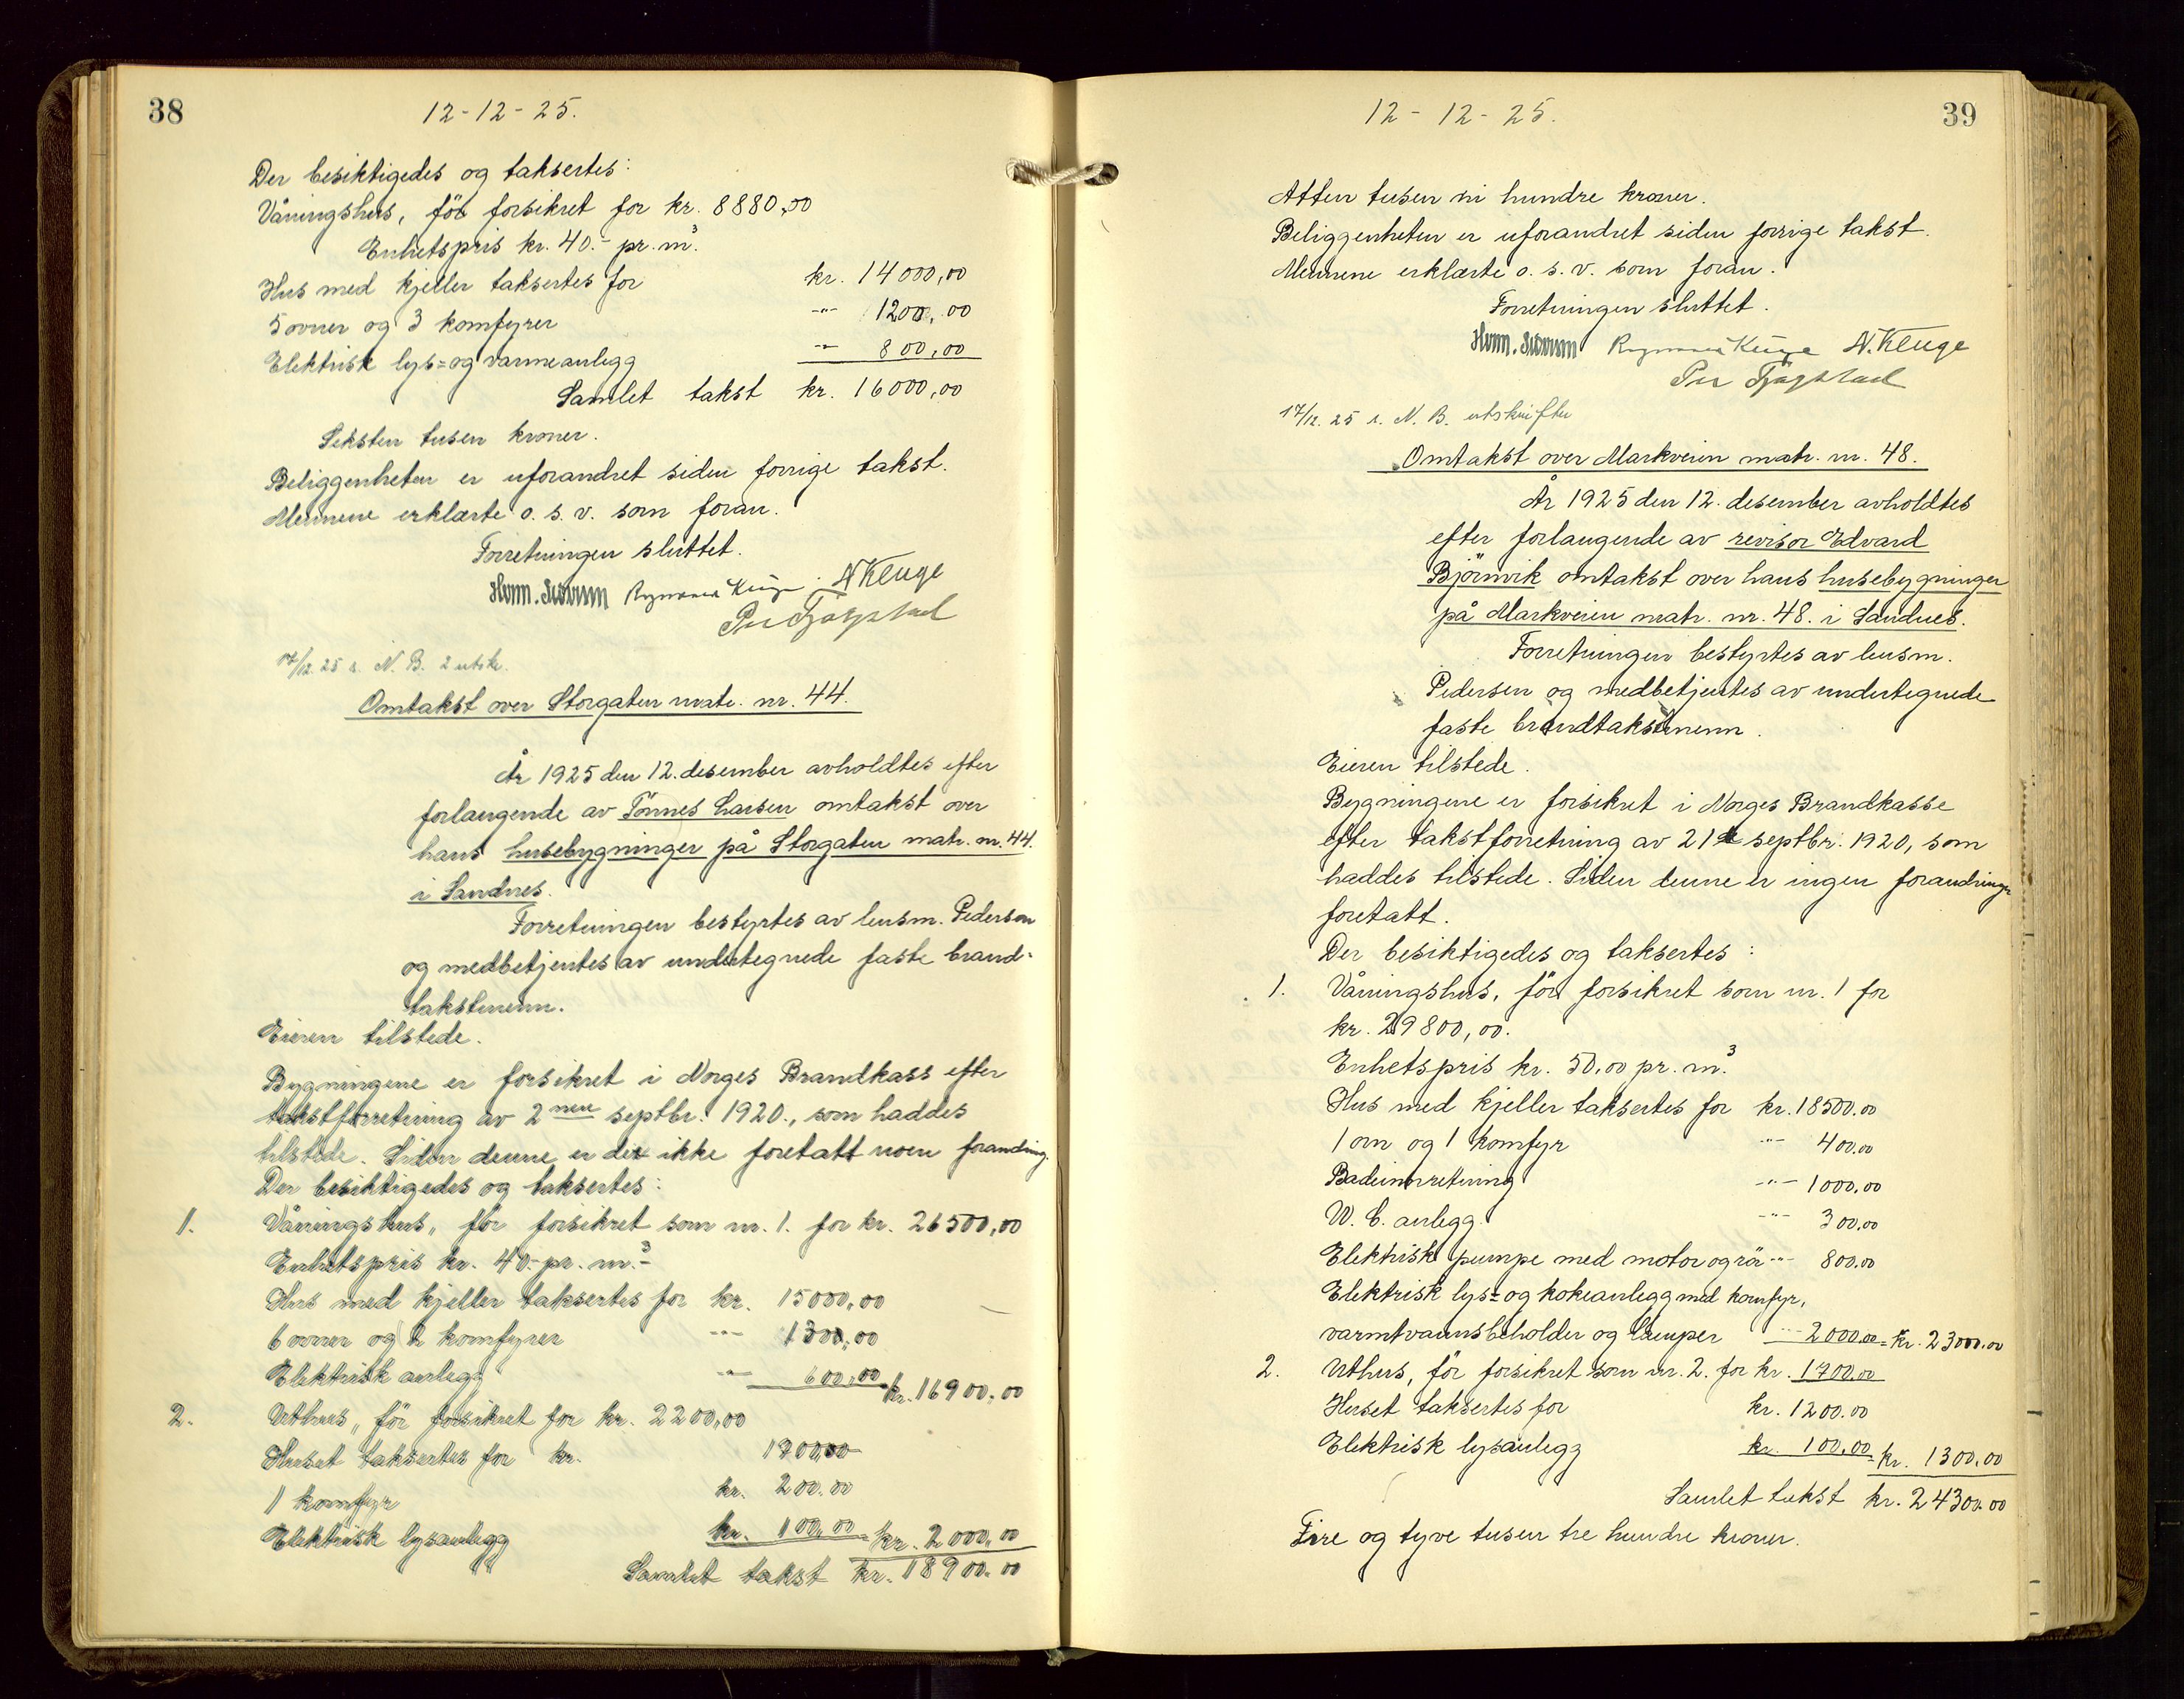 38
12-12-25.
Der besiktigedes og taksertes:
Våningshus, för forsikret for kr. 8880,00
Enhetspris kr. 40.- pr. m³.
Hus med kjeller taksertes for kr. 14000,00
5 ovner og 3 komfyrer -"- 1200,00
Elektrisk lys= og varmeanlegg -"- 800,00
Samlet takst kr. 16000,00
Seksten tusen kroner.
Beliggenheten er uforandret siden forrige takst.
Mennene erklærte o. s. v. som foran.
Forretningen sluttet.
N Kluge
17/12. 25 s. N. B. 2 utskr.
Omtakst over Storgaten matr. nr. 44.
År 1925 den 12. desember avholdtes efter
forlangende av Tönnes Larsen omtakst over
hans husebygninger på Storgaten matr. nr. 44.
i Sandnes.
Forretningen bestyrtes av lensm. Pedersen
og medbetjentes av undertegnede faste brand-
takstmenn.
Eieren tilstede.
Bygningene er forsikret i Norges Brandkass efter
takstforretning av 2nen septbr. 1920., som haddes
tilstede. Siden denne er der ikke foretatt noen forandring.
Der besiktigedes og taksertes:
1. Våningshus, för forsikret som nr. 1. for kr. 26500,00
Enhetspris kr. 40.- pr. m.³
Hus med kjeller taksertes for kr. 15000,00
6 ovner og 2 komfyrer -"- 1300,00
Elektrisk anlegg -"- 600,00 kr. 16900,00
2. Uthus, för forsikret for kr. 2200,00
Huset taksertes for kr. 1700,00
1 komfyr kr. 200.00
Elektrisk lysanlegg kr. 100,00 = kr. 2000,00
Samlet takst kr. 18900.00
39
12-12-25.
Atten tusen ni hundre kroner.
Beliggenheten er uforandret siden forrige takst.
Mennene erklærte o. s. v. som foran.
Forretningen sluttet.
N. Kluge
17/12. 25 s. N. B. utskrifter
Omtakst over Markveien matr. nr. 48.
År 1925 den 12. desember avholdtes
efter forlangende av revisor Edvard
Björnvik omtakst over hans husebygninger
på Markveien matr. nr. 48. i Sandnes.
Forretningen bestyrtes av lensm.
Pedersen og medbetjentes av undertegnede
faste brandtakstmenn.
Eieren tilstede.
Bygningene er forsikret i Norges Brandkasse
efter takstforretning av 21de septbr. 1920, som
haddes tilstede. Siden denne er ingen forandringer
foretatt.
Der besiktigedes og taksertes:
1. Våningshus, för forsikret som nr. 1 for
kr. 29800,00.
Enhetspris kr. 50,00 pr. m³.
Hus med kjeller taksertes for kr. 18500.00
1 ovn og 1 komfyr -"- 400.00
Badeinnretning -"- 1000.00
W. C. anlegg. -"- 300.00
Elektrisk pumpe med motor og rör -"- 800.00
Elektrisk lys= og kokeanlegg med komfyr,
varmtvannsbeholder og lamper -"- 2000.00 = kr. 23000.00
2. Uthus, för forsikret som nr. 2. for kr. 1700.00
Huset taksertes for kr. 1200.00
Elektrisk lysanlegg kr. 100.00 = kr. 1300.00
Samlet takst kr. 24300.00
Fire og tyve tusen tre hundre kroner.